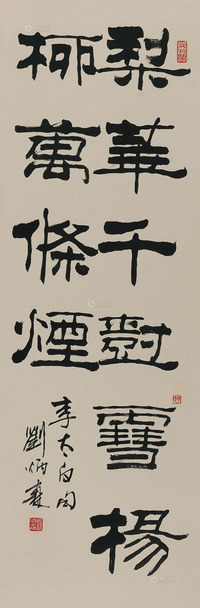 梨華千尌雪楊
柳萬條煙
李太白句
劉炳森